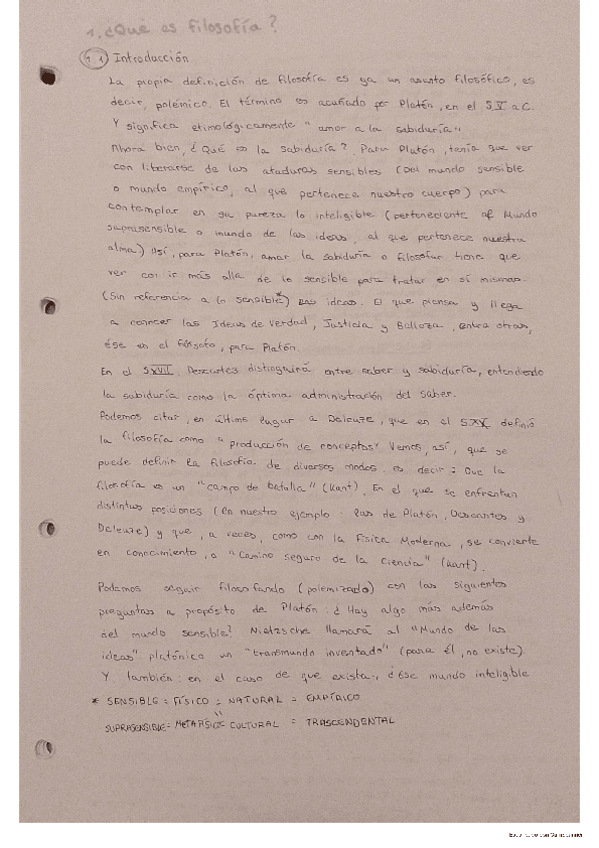 1. ¿Qué es filosofía?
1.1 Introducción
La propia definición de filosofía es ya un asunto filosófico, es
decir, polémico. El término es acuñado por Platón, en el S.V a.C.
Y significa etimológicamente "amor a la sabiduría".
Ahora bien, ¿Qué es la sabiduría? Para Platón, tenía que ver
con liberarse de las ataduras sensibles (Del mundo sensible
o mundo empírico, al que pertenece nuestro cuerpo) para
contemplar en su pureza lo inteligible (perteneciente al Mundo
suprasensible o mundo de las ideas, al que pertenece nuestra
alma) Así, para Platón, amar la sabiduría o filosofar tiene que
ver con ir más alla de lo sensible para tratar en sí mismas
(Sin referencia a lo sensible*) las ideas. El que piensa y llega
a conocer las Ideas de Verdad, Justicia y Belleza, entre otras,
ése es el filósofo, para Platón.
En el S.XVII. Descartes distinguirá entre saber y sabiduría, entendiendo
la sabiduría como la óptima administración del saber.
Podemos citar, en último lugar a Deleuze, que en el S.XX definió
la filosofía como "producción de conceptos" Vemos, así, que se
puede definir la filosofía de diversos modos, es decir: Que la
filosofía es un "campo de batalla" (Kant). En el que se enfrentan
distintas posiciones (en nuestro ejemplo: las de Platón, Descartes y
Deleuze) y que, a veces, como con la Física Moderna, se convierte
en conocimiento, o "Camino seguro de la ciencia" (Kant).
Podemos seguir filosofando (polemizado) con las siguientes
preguntas a propósito de Platón: ¿Hay algo más además
del mundo sensible? Nietzsche llamará al "Mundo de las
ideas" platónico un "transmundo inventado" (para él, no existe).
Y también: en el caso de que exista, ¿Ése mundo inteligible
* SENSIBLE = FÍSICO = NATURAL = EMPÍRICO
SUPRASENSIBLE = METAFÍSICO = CULTURAL = TRASCENDENTAL